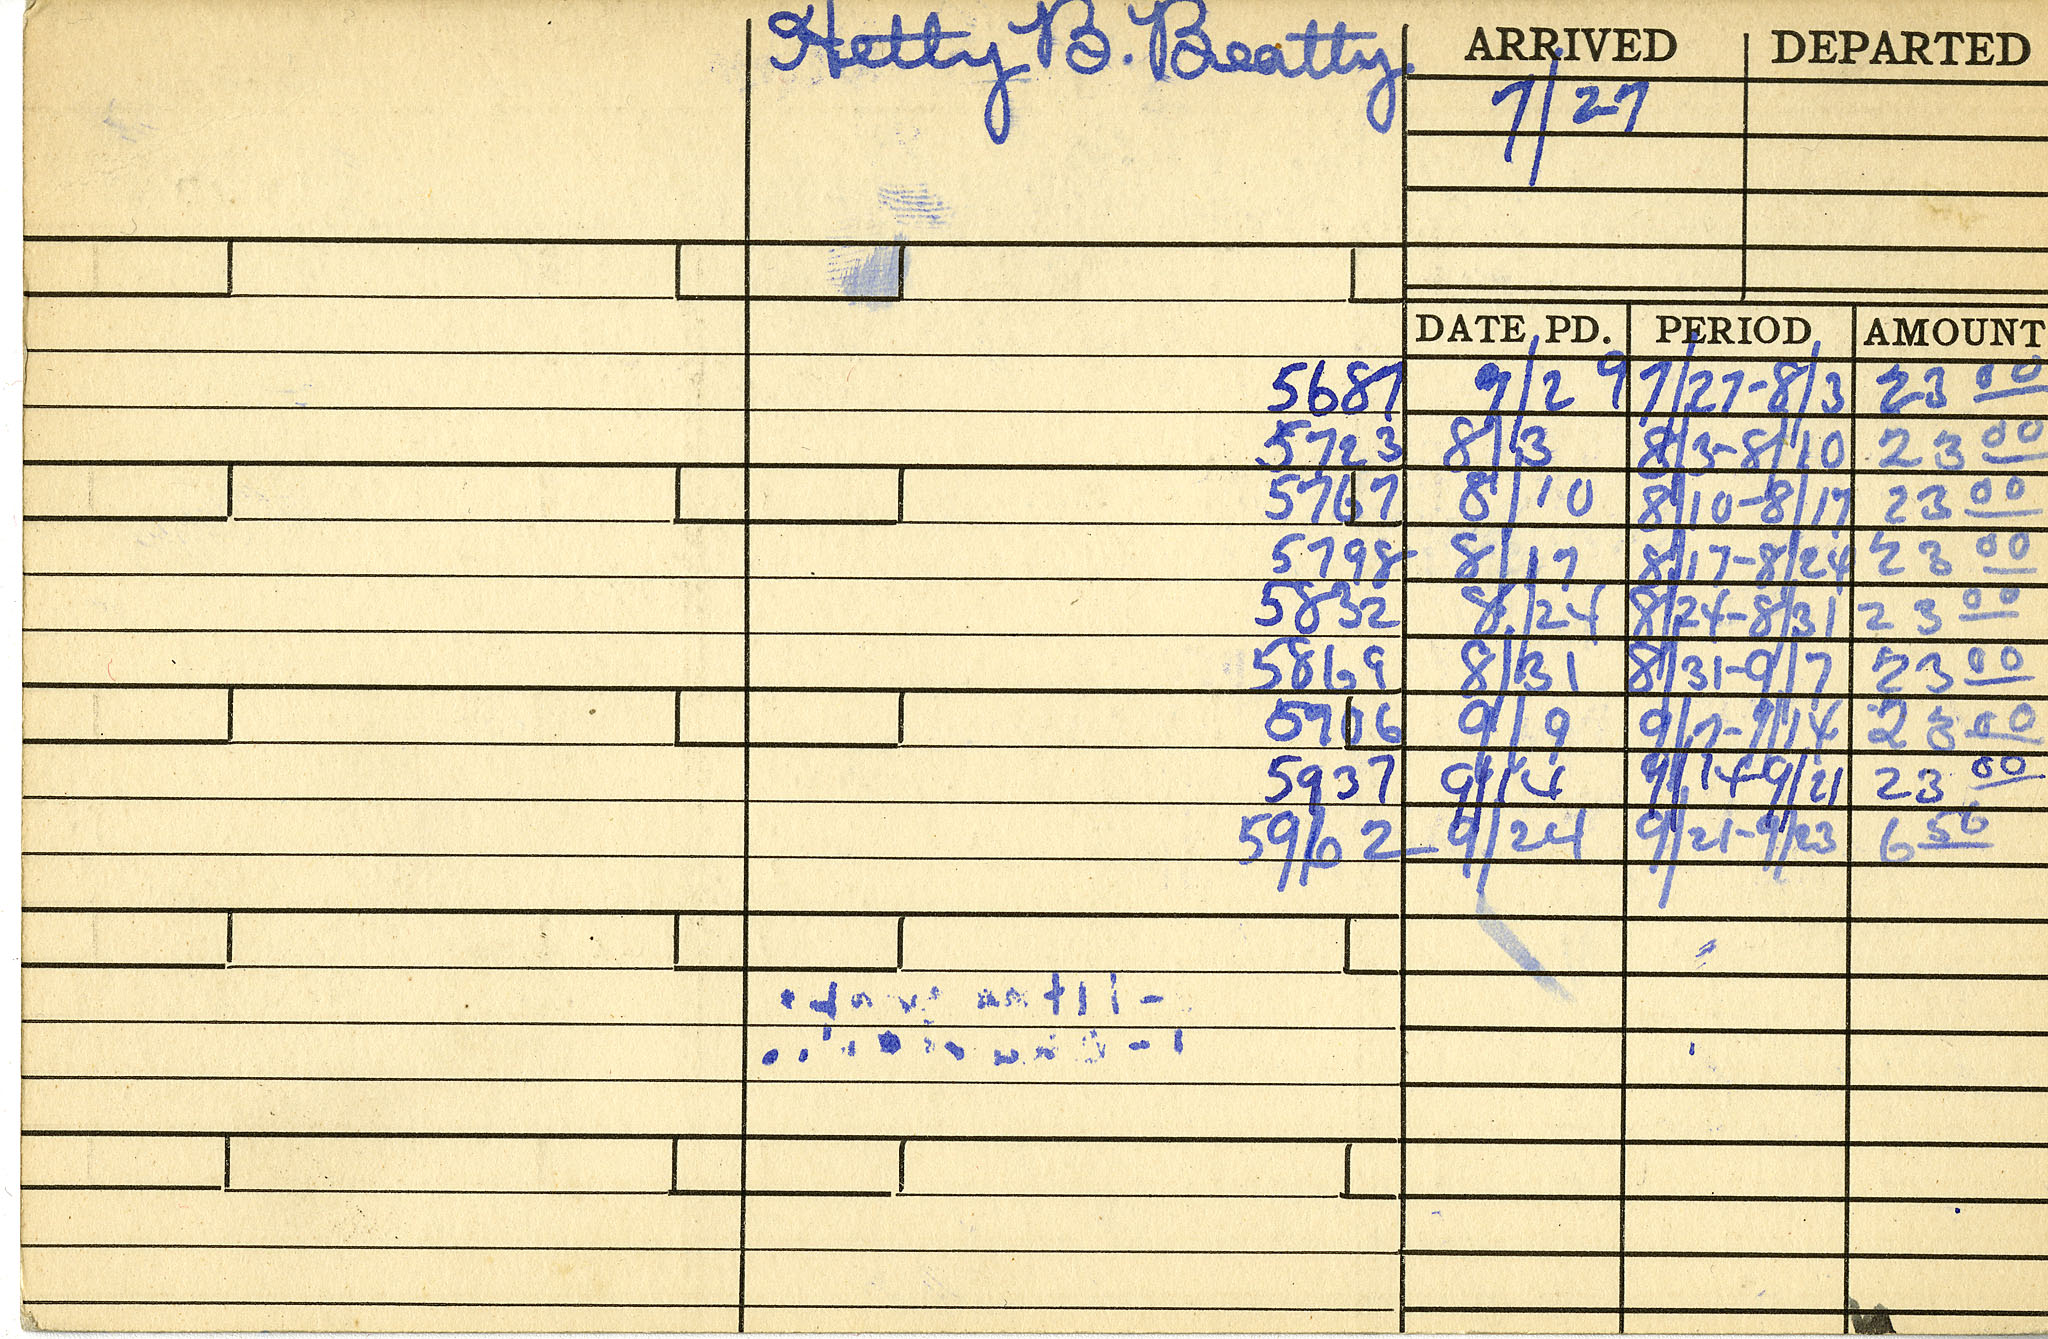 Hetty B. Beatty. ARRIVED DEPARTED
7/27
DATE PD. PERIOD AMOUNT
5687 9/29 7/27-8/3 23 00
5723 8/3 8/3-8/10 23 00
5767 8/10 8/10-8/17 23 00
5798 8/17 8/17-8/24 23 00
5832 8/24 8/24-8/31 23 00
5869 8/31 8/31-9/7 23 00
5906 9/9 9/7-9/14 23 00
5937 9/14 9/14-9/21 23 00
5962 9/24 9/21-9/23 6 56